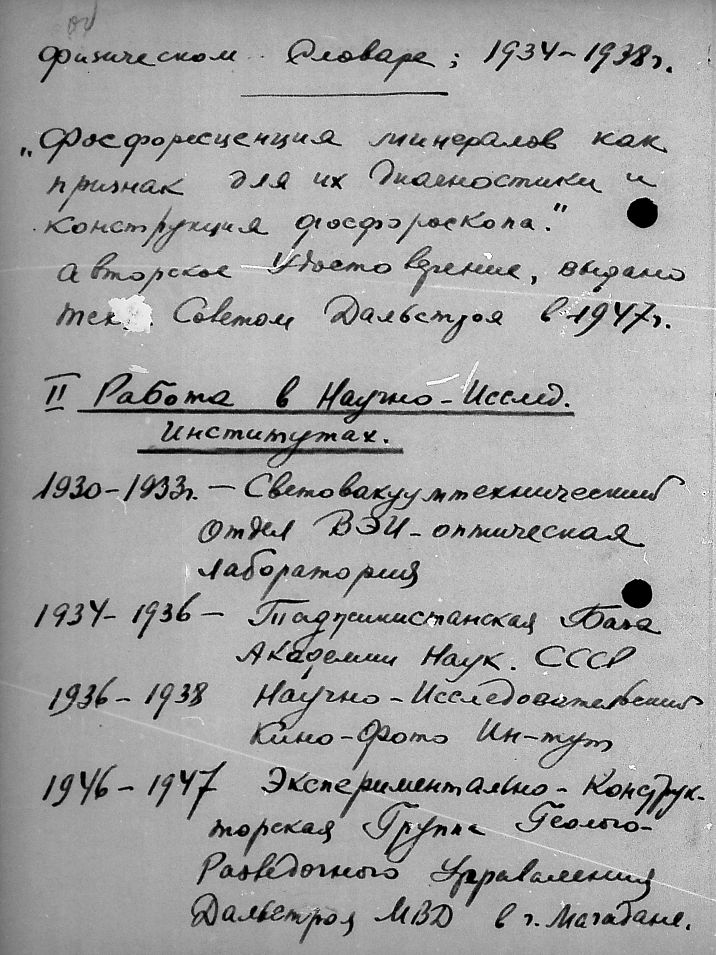 физическом словаре; 1934-1938г.
„Фосфоресценция минералов как
признак для их диагностики и
конструкция фосфороскопа."
Авторское Удостоверение, выдано
Тех. Советом Дальстроя в 1947г.
II Работа в Научно-Исслед.
Институтах.
1930-1933г. – Световакуумтехнический
отдел ВЭИ-оптическая
лаборатория
1934-1936 – Таджикистанская База
Академии Наук. СССР
1936-1938 Научно-Исследовательский
Кино-Фото Ин-тут
1946-1947 Экспериментально-Конструк-
торская Группа Геолого-
Разведочного Управления
Дальстроя МВД в г. Магадане.